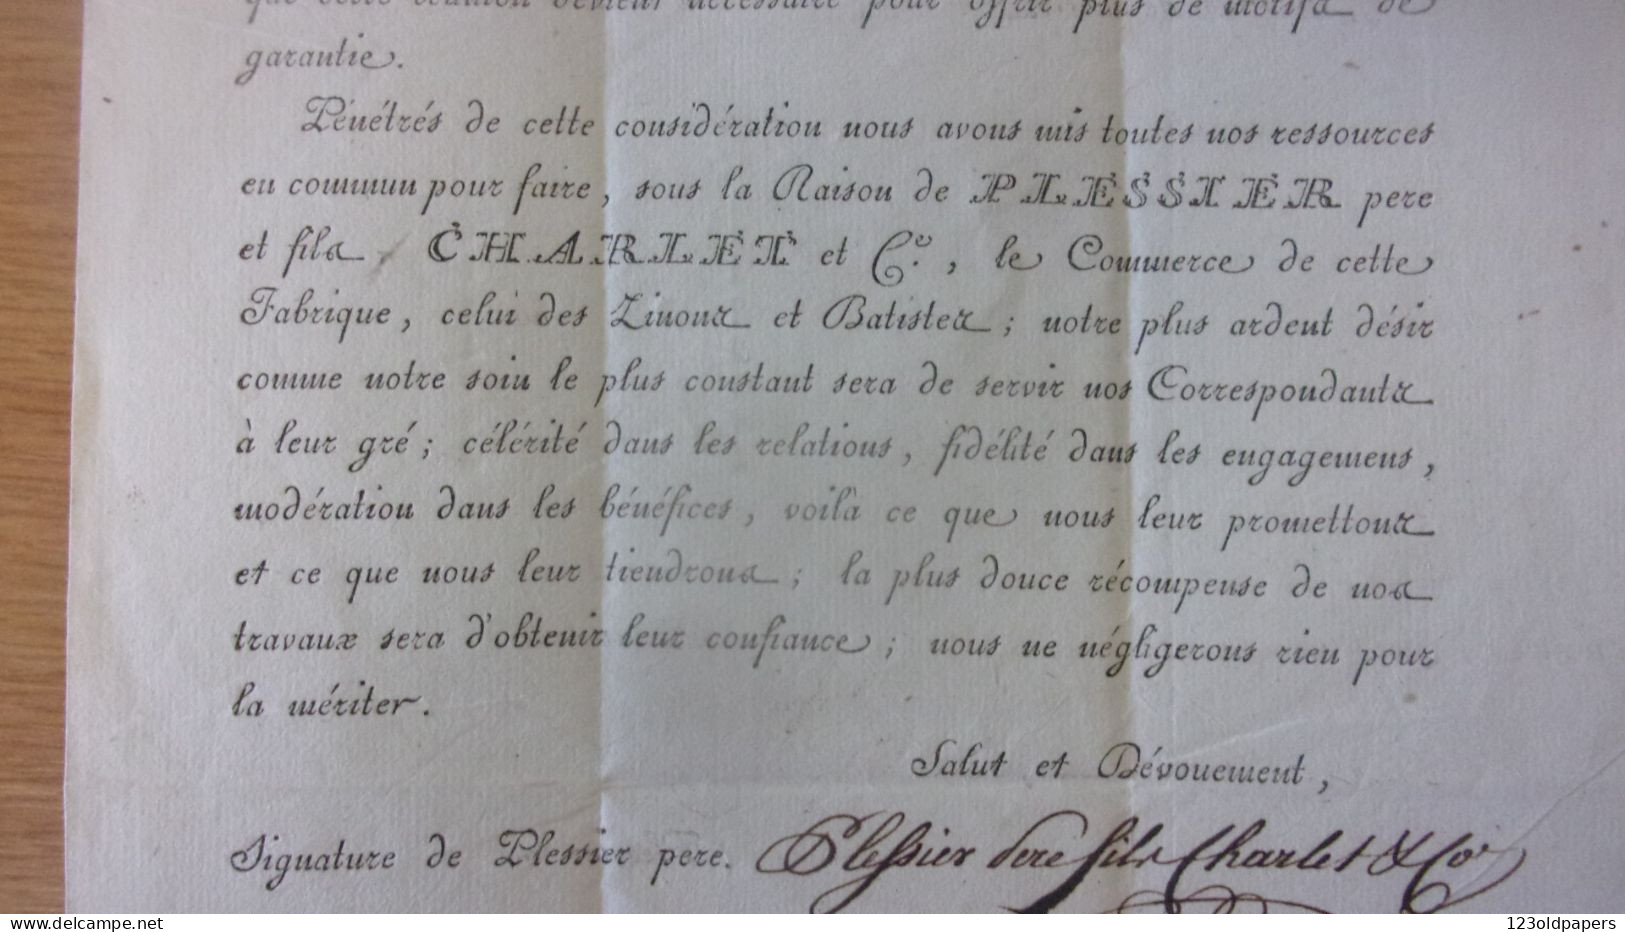 que cette réunion devient nécessaire pour offrir plus de motifs de
garantie.
Pénétrés de cette considération nous avons mis toutes nos ressources
en commun pour faire, sous la Raison de PLESSIER pere
et fils, CHARLET et C.e, le Commerce de cette
Fabrique, celui des Linons et Batistes; notre plus ardent désir
comme notre soin le plus constant sera de servir nos Correspondants
à leur gré; célérité dans les relations, fidélité dans les engagemens,
modération dans les bénéfices, voilà ce que nous leur promettons
et ce que nous leur tiendrons; la plus douce récompense de nos
travaux sera d'obtenir leur confiance; nous ne négligerons rien pour
la mériter.
Salut et Dévouement,
Signature de Plessier pere. Plessier Pere fils Charlet & Co
123oldpapers